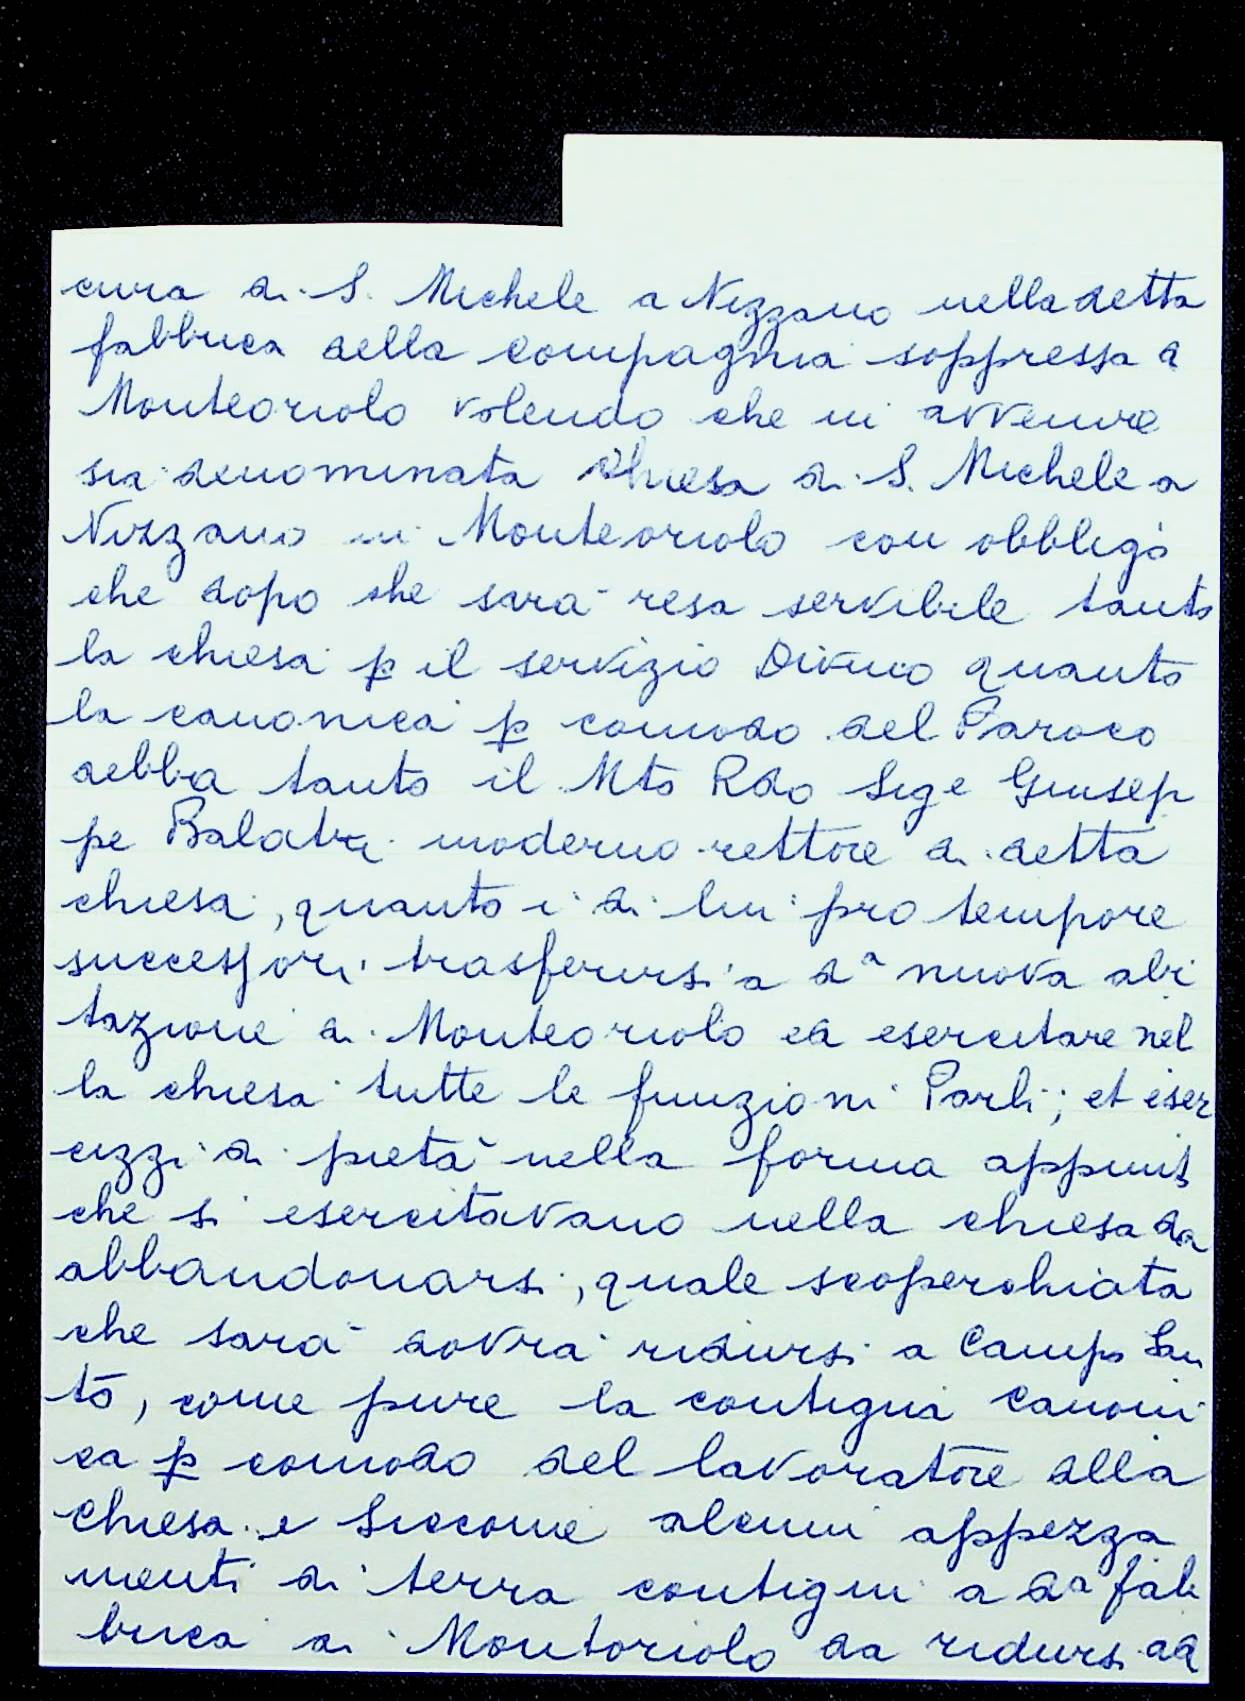 cura di S. Michele a Nizzano nella detta
fabbrica della compagnia soppressa a
Monteoriolo volendo che in avvenire
sia denominata Chiesa di S. Michele a
Nizzano in Monteoriolo con obbligo
che dopo che sarà resa servibile tanto
la chiesa p il servizio Divino quanto
la canonica p comodo del Paroco
debba tanto il Mto Rdo Sige Giusep
pe Balatri moderno rettore di detta
chiesa, quanto i di lui pro tempore
successori trasferirsi a dª nuova abi
tazione di Monteoriolo ed esercitare nel
la chiesa tutte le funzioni Parli; et eser
cizzi di pietà nella forma appunto
che si esercitavano nella chiesa da
abbandonarsi, quale scoperchiata
che sarà dovrà ridursi a Campo San
to, come pure la contigua Canoni
ca p comodo del lavoratore alla
Chiesa e Siccome alcuni appezza
menti di terra contigui a dª fab
brica di Montoriolo da ridursi ad